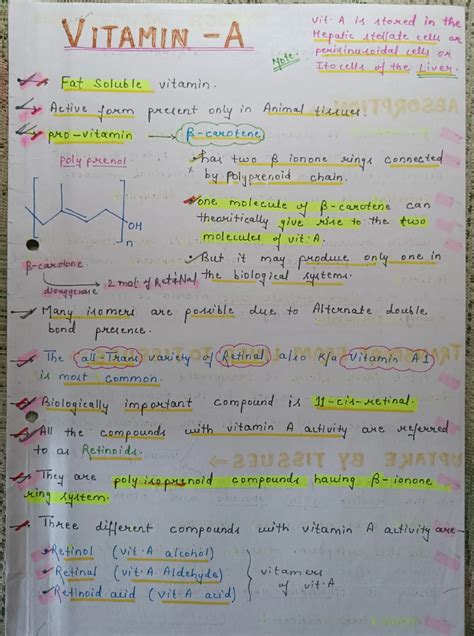 VITAMIN - A
Note:
vit. A is stored in the
Hepatic stellate cells or
perisinusoidal cells or
Ito cells of the Liver.
Fat Soluble vitamin.
Active form present only in Animal tissues
pro-vitamin → β-carotene
polyprenol
has two β ionone rings connected
by polyprenoid chain.
OH
n
one molecule of β-carotene can
theoritically give rise to the two
molecules of vit. A.
But it may produce only one in
the biological systems.
β-carotene
dioxygenase
2 mol. of Retinal
Many isomers are possible due to Alternate double
bond presence.
The all-Trans variety of Retinal, also k/a Vitamin A1
is most common.
Biologically important compound is 11-cis-retinal.
All the compounds with vitamin A activity are referred
to as Retinoids.
They are poly isoprenoid compounds having β-ionone
ring system.
Three different compounds with vitamin A activity are-
Retinol (vit. A alcohol)
Retinal (vit. A Aldehyde)
Retinoid acid (vit. A acid)
vitamers
of vit. A